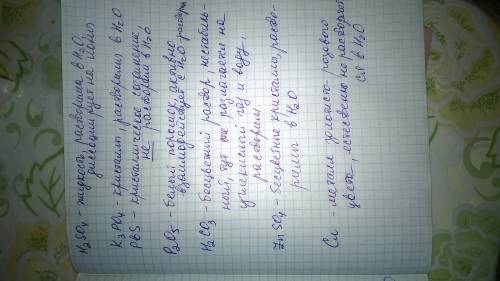 H₂SO₄ - жидкость, растворима в H₂O,
диссоциирует на ионы
K₃PO₄ - кристалл, растворим в H₂O
PbS - кристаллическое соединение,
не растворим в H₂O
P₂O₅ - белый порошок, активно
взаимодействует с H₂O
H₂CO₃ - бесцветный раствор, нестабиль-
ный, тут же разлагается на
углекислый газ и воду,
растворим,
ZnSO₄ - бесцветные кристаллы, раство-
римы в H₂O
Cu - металл золотисто-розового
цвета, естественно не растворяет
ся в H₂O